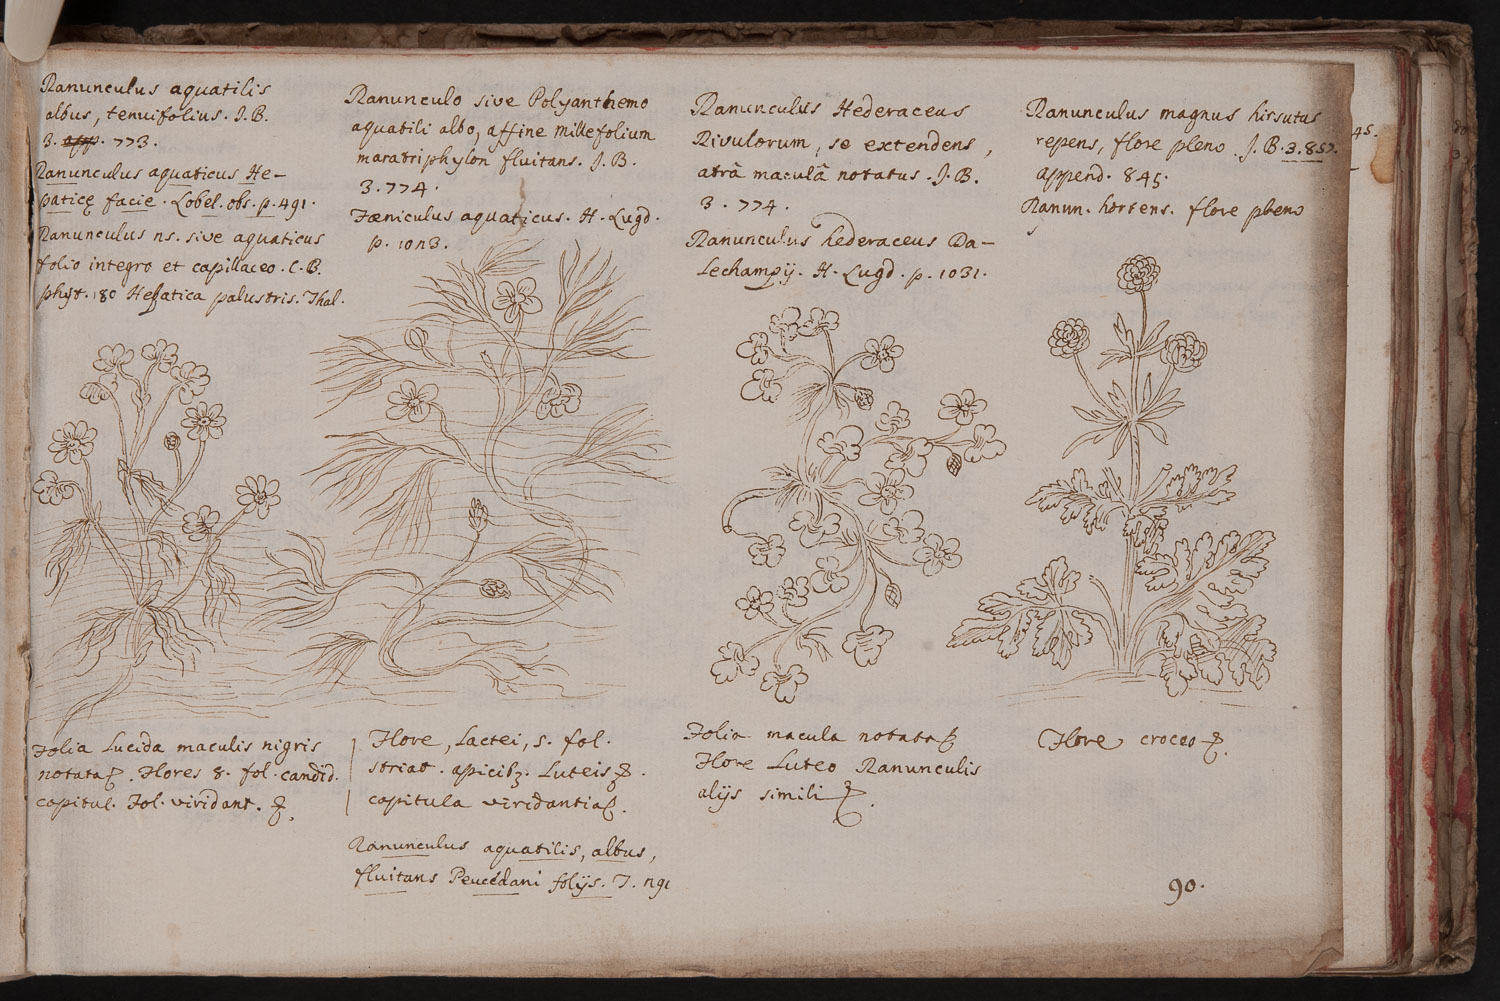 Ranunculus aquatilis
albus, tenuifolius. J. B.
3. 773.
Ranunculus aquaticus He-
paticę facie. Lobel. obs. p. 491.
Ranunculus ns. sive aquaticus
folio integro et capillaceo. C. B.
phyt. 180 Hepatica palustris. Thal.
Ranunculo sive Polyanthemo
aquatili albo, affine Millefolium
maratriphylon fluitans. J. B.
3. 774.
Fæniculus aquaticus. H. Lugd.
p. 1023.
Ranunculus Hederaceus
Rivulorum, se extendens,
atrâ maculâ notatus. J. B.
3. 774.
Ranunculus hederaceus Da-
lechampij. H. Lugd. p. 1031.
Ranunculus magnus hirsutus
repens, flore pleno. J. B. 3. 857.
append. 845.
Ranun. hortens. flore pleno
45.
Folia Lucida maculis nigris
notata. Flores 8. fol. candid.
capitul. Fol. viridant.
Flore, Lactei, 5. fol.
striat. apicib. Luteis
capitula viridantia
Ranunculus aquatilis, albus,
fluitans Peucedani folijs. T. 291
Folia macula notata
Flore Luteo Ranunculis
alijs simili
Flore croceo
90.